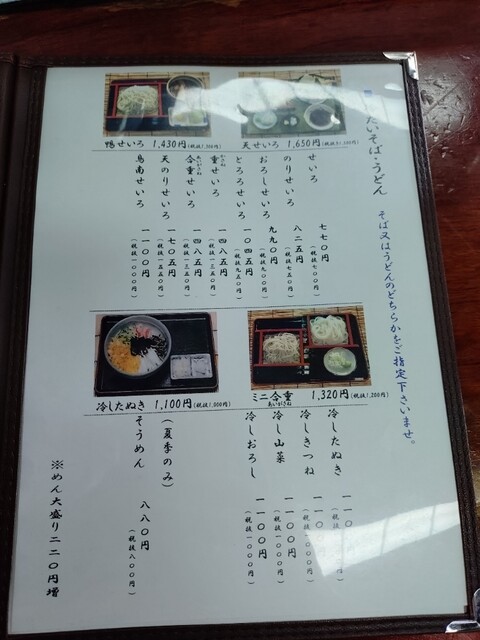 冷たいそば・うどん
そば又はうどんのどちらかをご指定下さいませ。
鴨せいろ 1,430円(税抜1,300円)
天せいろ 1,650円(税抜1,500円)
せいろ 七七〇円(税抜七〇〇円)
のりせいろ 八二五円(税抜七五〇円)
おろしせいろ 九九〇円(税抜九〇〇円)
とろろせいろ 一〇四五円(税抜九五〇円)
重せいろ 一四八五円(税抜一三五〇円)
合重せいろ 一四八五円(税抜一三五〇円)
天のりせいろ 一七〇五円(税抜一五五〇円)
鳥南せいろ 一一〇〇円(税抜一〇〇〇円)
冷したぬき 1,100円(税抜1,000円)
ミニ合重 1,320円(税抜1,200円)
冷したぬき
冷しきつね
冷し山菜 一一〇〇円(税抜一〇〇〇円)
冷しおろし 一一〇〇円(税抜一〇〇〇円)
(夏季のみ)
そうめん 八八〇円(税抜八〇〇円)
※めん大盛り二二〇円増